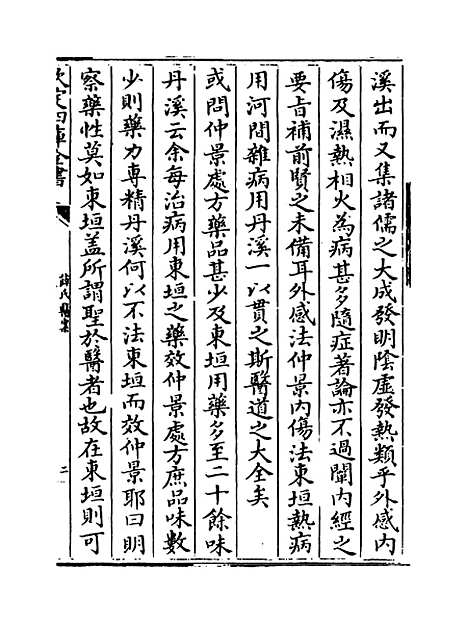 溪出而又集諸儒之大成發明陰虛發熱類乎外感内
傷及濕熱相火為病甚多隨症著論亦不過闡内經之
要旨補前賢之未備耳外感法仲景内傷法東垣熱病
用河間雜病用丹溪一以貫之斯醫道之大全矣
或問仲景處方藥品甚少及東垣用藥多至二十餘味
丹溪云余每治病用東垣之藥效仲景處方庶品味數
少則藥力專精丹溪何以不法東垣而效仲景耶曰明
察藥性莫如東垣盖所謂聖於醫者也故在東垣則可
欽定四庫全書
薛氏醫案
二